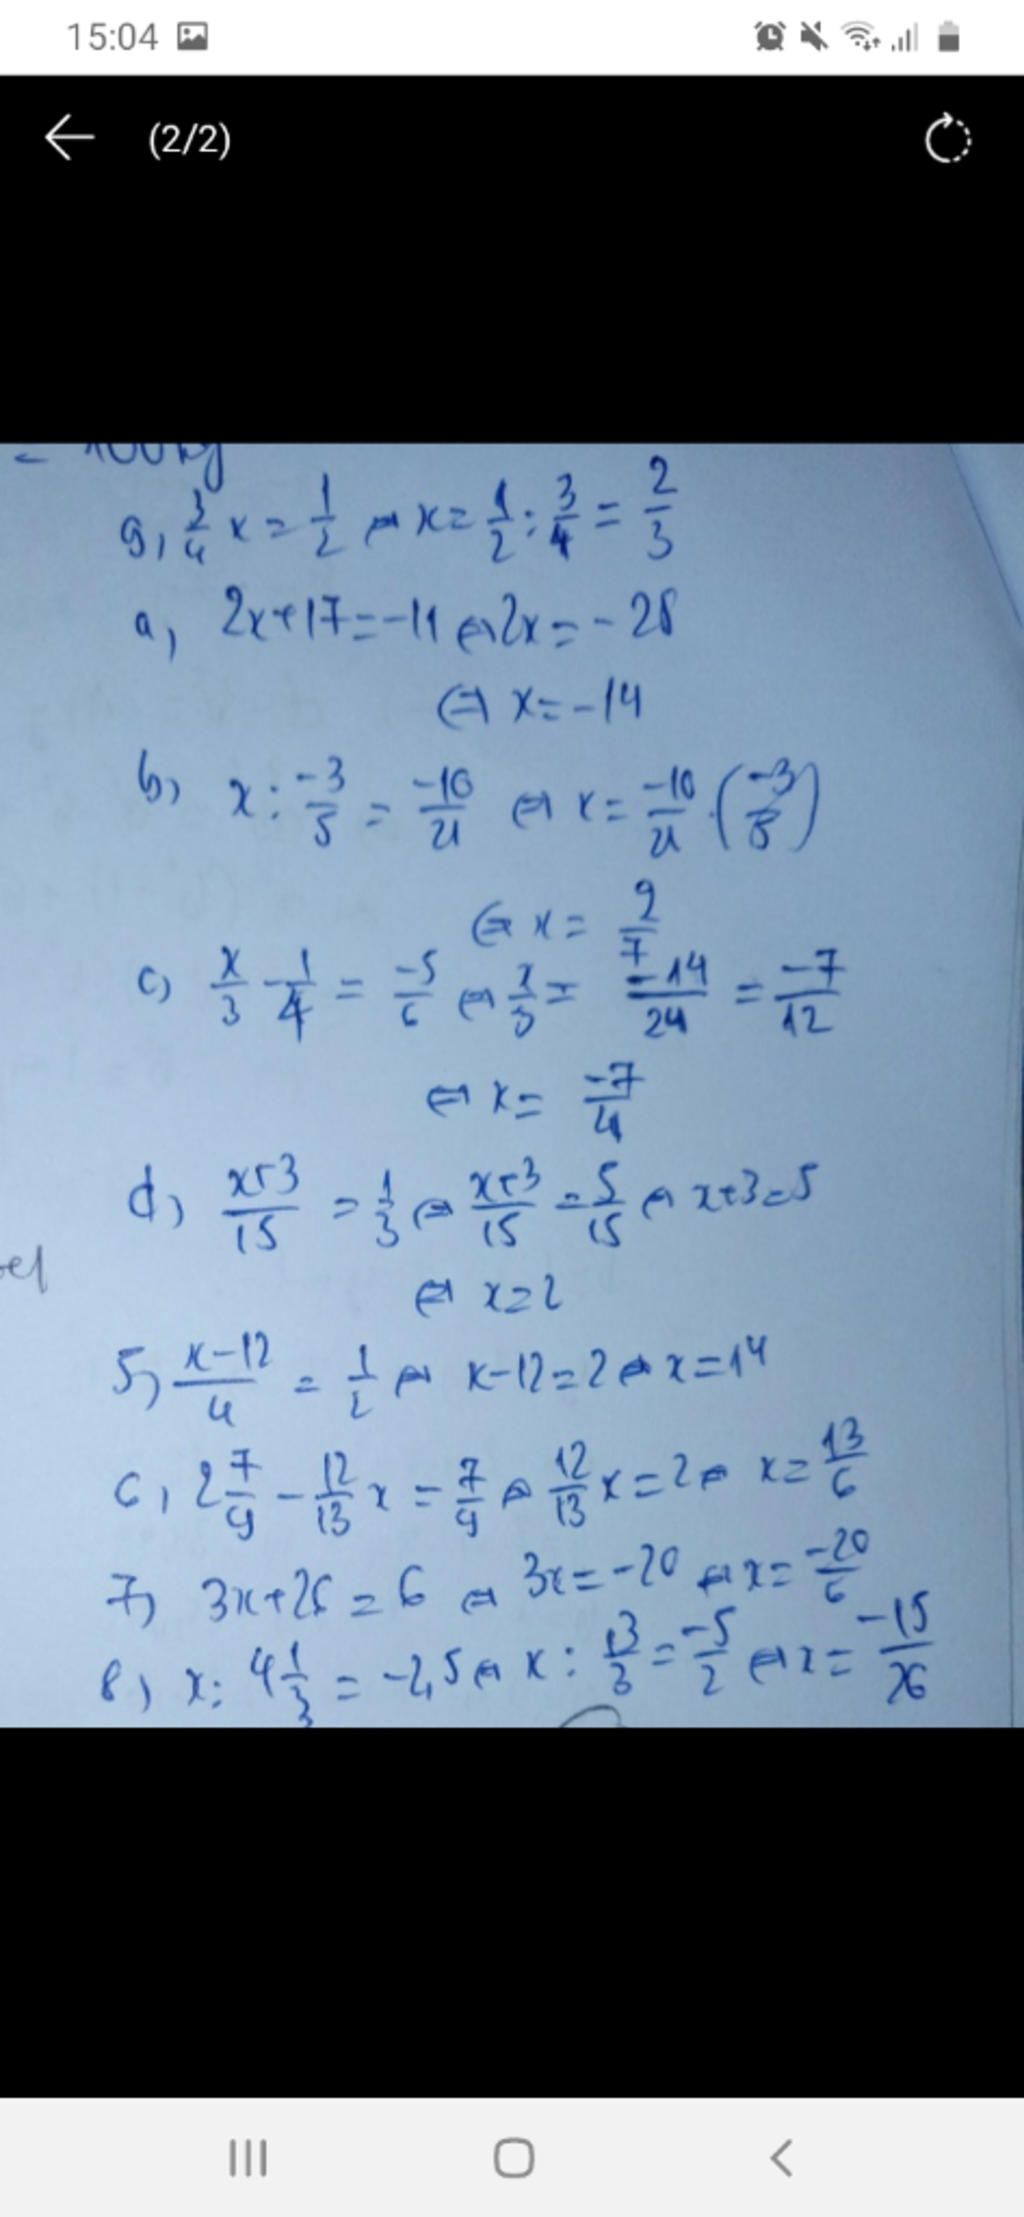 15:04
(2/2)
= 100kg
9, 3/4 x = 1/2 ⇔ x = 1/2 : 3/4 = 2/3
a, 2x+17=-11 ⇔ 2x=-28
⇔ x=-14
b, x : -3/5 = -10/21 ⇔ x = -10/21 . (-3/5)
⇔ x = 2/7
c) x/3 - 1/4 = -5/6 ⇔ x/3 = -14/24 = -7/12
⇔ x = -7/4
d, x+3/15 = 1/3 ⇔ x+3/15 = 5/15 ⇔ x+3=5
⇔ x=2
5, x-12/4 = 1/2 ⇔ x-12=2 ⇔ x=14
6, 2 7/9 - 12/13 x = 7/9 ⇔ 12/13 x = 2 ⇔ x = 13/6
7, 3x+26=6 ⇔ 3x=-20 ⇔ x = -20/6
8, x : 4 1/3 = -2,5 ⇔ x : 13/3 = -5/2 ⇔ x = -15/26